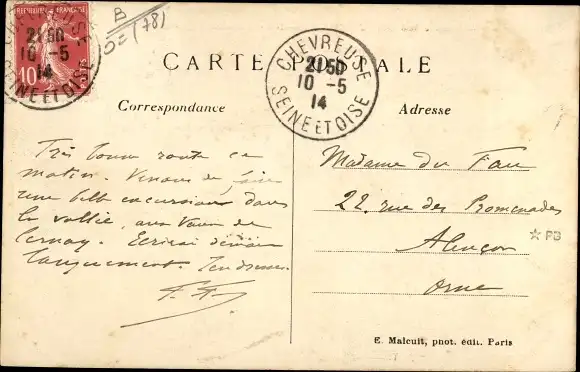 RÉPUBLIQUE FRANÇAISE
10
CHEVREUSE
21 50
10 -5
14
SEINE ET OISE
B
(78)
CARTE POSTALE
CHEVREUSE
21 50
10 -5
14
SEINE ET OISE
Correspondance
Adresse
Très bonne route ce
matin. Venons de faire
une belle excursion dans
la vallée, aux Vaux de
Cernay. Ecrirai demain
longuement. Tendresses.
Madame du Fau
22. rue des Promenades
Alençon
Orne
PB
E. Malcuit, phot. édit. Paris